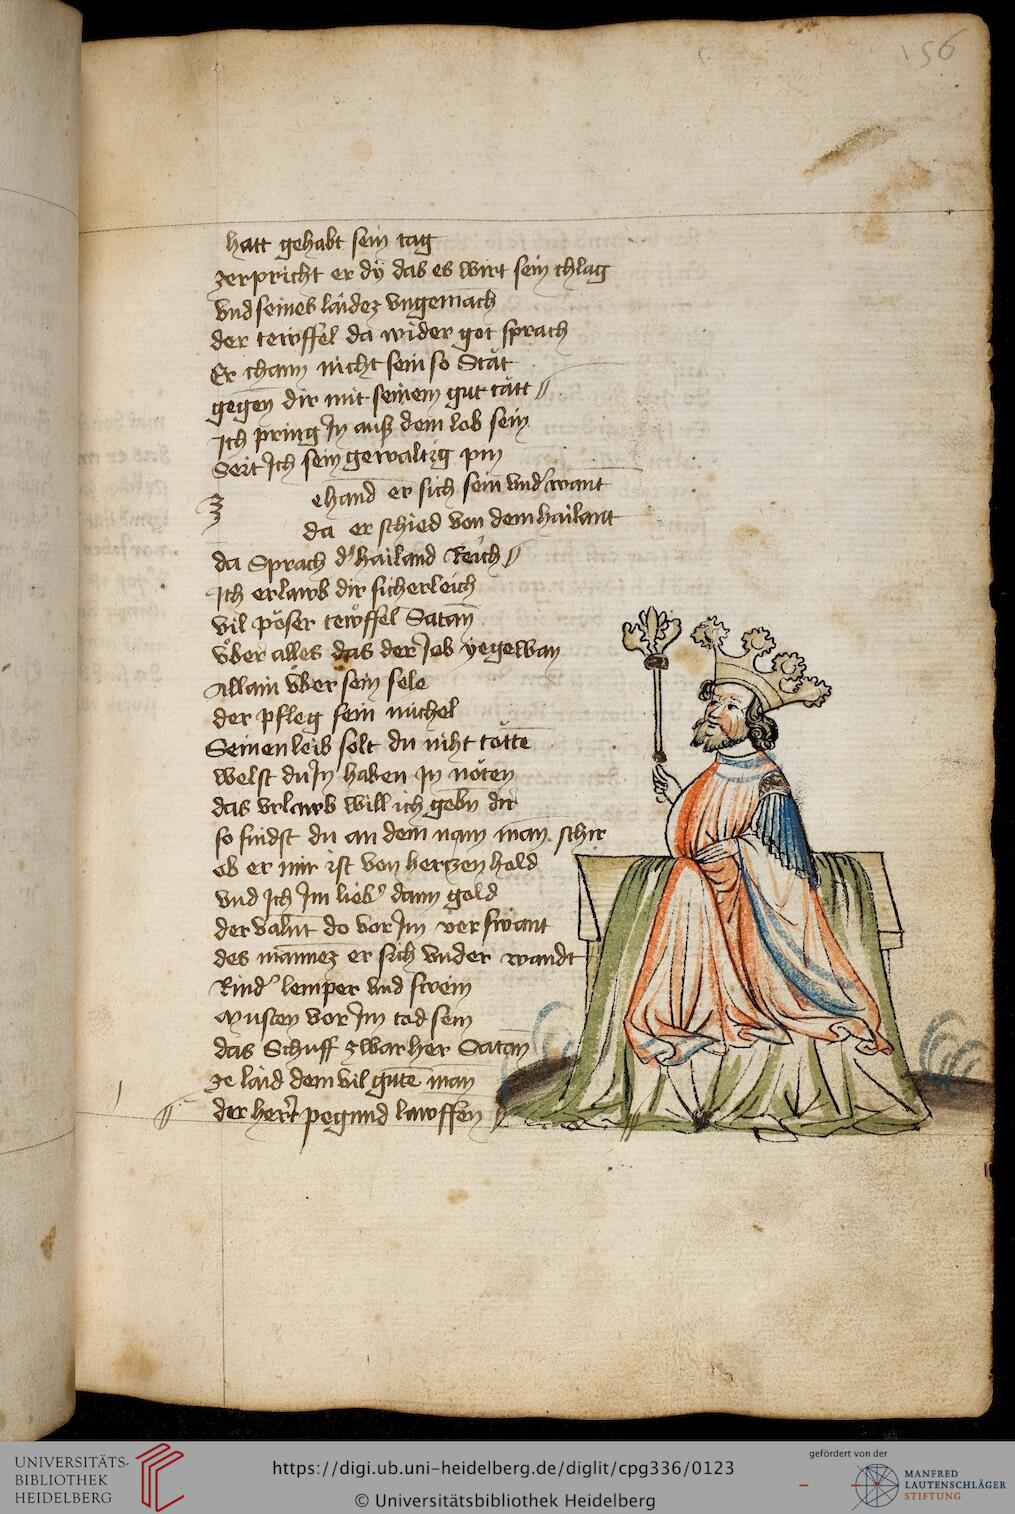 56
hatt gehabt sein tag
zerpricht er dÿ das es wirt sein chlag
vnd seines laidez vngemach
der tewffel da wider got sprach
Er chann nicht sein so Stät
gegen dir mit seinem gut tätt
Ich pring In auß dem lob sein
Seit Ich sein gewaltig pin
z ehand er sich sein vnd' want
da er schied von dem hailant
da Sprach d' hailand Reich
Ich erlawb dir sicherleich
vil pöser tewffel Satan
vber alles das der Job ye gewan
Allain vber sein sele
der pfleg sein michel
Seinen leib solt du niht tötte
welst du In haben In nöten
das vrlawb will ich gebn dir
so findst du an dem man schir
ob er mir ist von hertzen hold
vnd Ich Im lieb' dann gold
der valnt do vor Im verswant
des mannez er sich vnder wandt
Rind' lemper vnd swein
Musten vor Im tod sein
das Schuff zwar her Satan
ze laid dem vil gute man
der hert pegund lawffen
UNIVERSITÄTS-
BIBLIOTHEK
HEIDELBERG
https://digi.ub.uni-heidelberg.de/diglit/cpg336/0123
© Universitätsbibliothek Heidelberg
gefördert von der
MANFRED
LAUTENSCHLÄGER
STIFTUNG